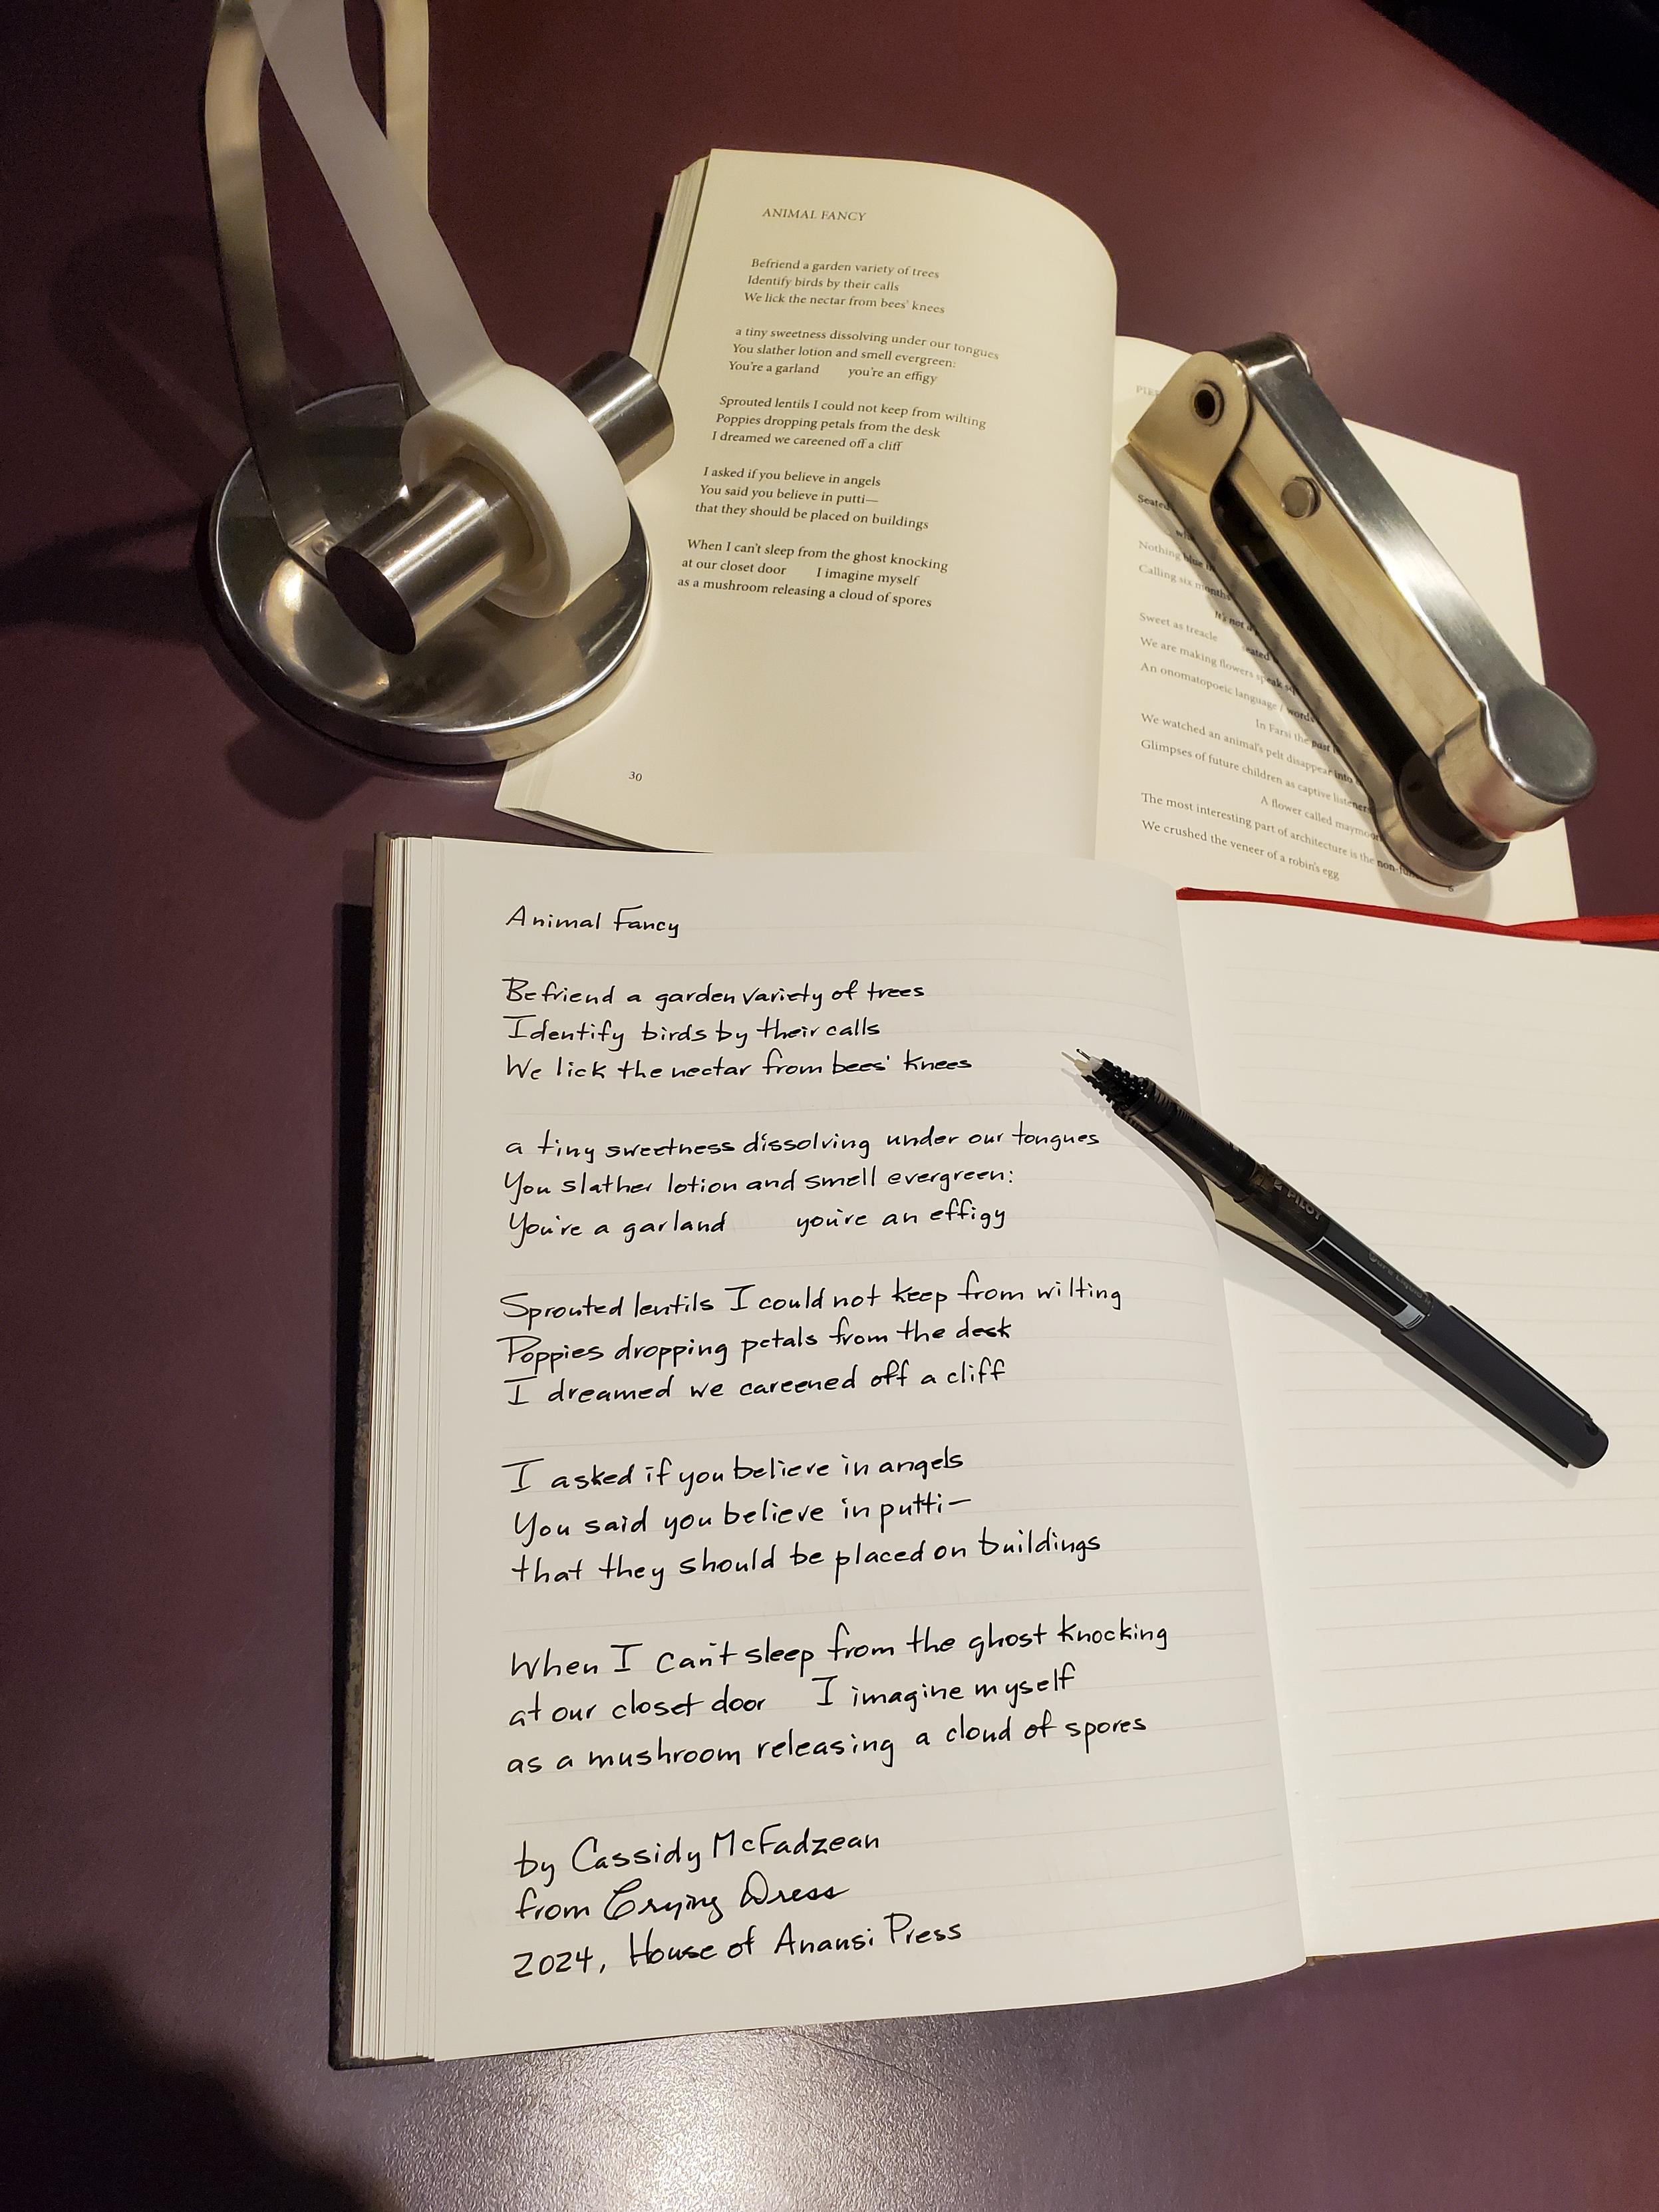 ANIMAL FANCY
Befriend a garden variety of trees
Identify birds by their calls
We lick the nectar from bees' knees
a tiny sweetness dissolving under our tongues
You slather lotion and smell evergreen:
You're a garland you're an effigy
Sprouted lentils I could not keep from wilting
Poppies dropping petals from the desk
I dreamed we careened off a cliff
I asked if you believe in angels
You said you believe in putti—
that they should be placed on buildings
When I can't sleep from the ghost knocking
at our closet door I imagine myself
as a mushroom releasing a cloud of spores
30
Seated
Nothing blue
Calling six months
It's not
Sweet as treacle
We are making flowers speak
An onomatopoeic language / words
In Farsi the past
We watched an animal's pelt disappear into
Glimpses of future children as captive listeners
A flower called
The most interesting part of architecture is the
We crushed the veneer of a robin's egg
Animal Fancy
Befriend a garden variety of trees
Identify birds by their calls
We lick the nectar from bees' knees
a tiny sweetness dissolving under our tongues
You slather lotion and smell evergreen:
You're a garland you're an effigy
Sprouted lentils I could not keep from wilting
Poppies dropping petals from the desk
I dreamed we careened off a cliff
I asked if you believe in angels
You said you believe in putti—
that they should be placed on buildings
When I can't sleep from the ghost knocking
at our closet door I imagine myself
as a mushroom releasing a cloud of spores
by Cassidy McFadzean
from Crying Dress
2024, House of Anansi Press
PILOT